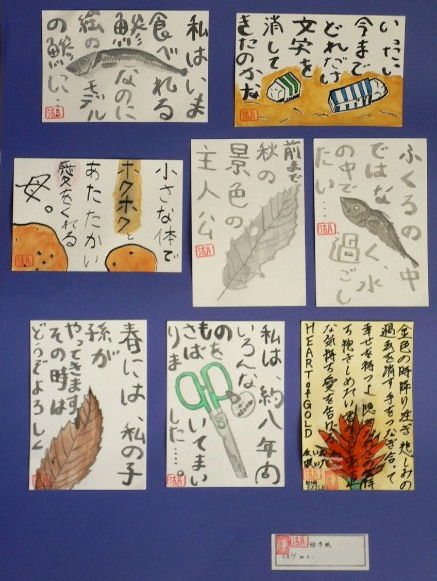 私はいま
食べれる
鯵なのに
絵のモデル
の鯵に…
いったい
今まで
どれだけ
文字を
消して
きたのかな
小さな体で
ホクホクと
あたたかい
愛をくれる
母。
前まで
秋の
景色の
主人公
ふくろの中
ではなく、水
の中で過ごし
たい…
春には、私の子
孫が
やってきます
その時は
どうぞよろしく
私は約八年内
いろんな
のを
いてまい
りました…。
金色の時降り注ぎ悲しみの
過去を消す手をつなぎ合って
幸せを持つ
HEART of GOLD
絵手紙